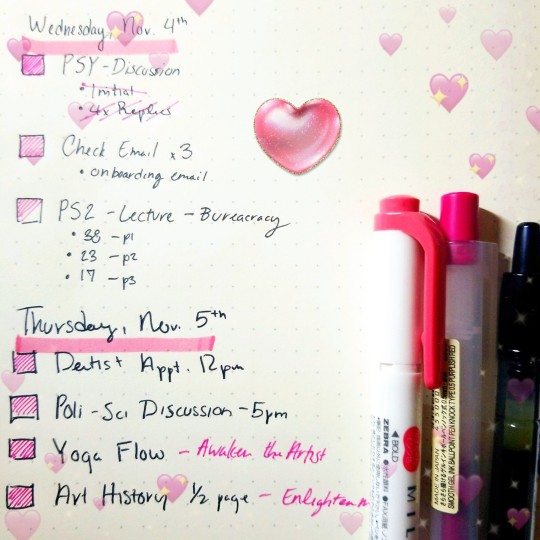 Wednesday, Nov. 4th
PSY - Discussion
• Initial
• 4x Replies
Check Email x3
• onboarding email
PS2 - Lecture - Bureacracy
• 38 - p1
• 23 - p2
• 17 - p3
Thursday, Nov. 5th
Dentist Appt. 12pm
Poli-Sci Discussion - 5pm
Yoga Flow - Awaken the Artist
Art History 1/2 page - Enlighten
◀BOLD
ZEBRA
MIL
MADE IN JAPAN
SMOOTH GEL INK BALLPOINT PEN KNOCK TYPE 0.5 PURPLISH RED